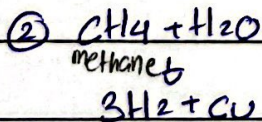 ② CH4 + H2O
methane ↳
3H2 + CO